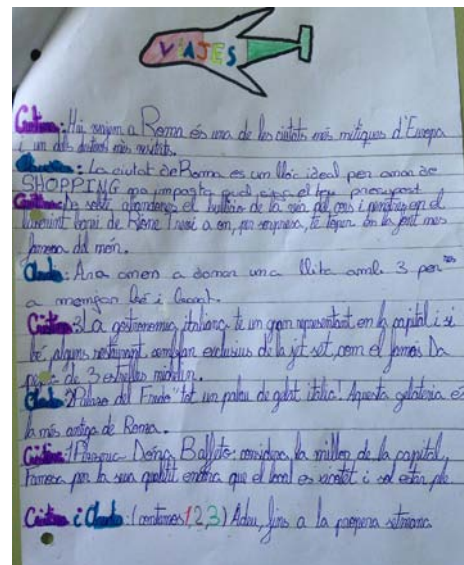 VIAJES
Cristina: Hui viajem a Roma és una de les ciutats més mítiques d'Europa
i un dels destins més visitats.
Claudia: La ciutat de Roma es um lloc ideal per anar de
SHOPPING no importa quel siga el teu presupost
Cristina: De sobte, abandones el bullici de la via del cors i en el
barri de i a on, per sorpresa, te topes en la font mes
famosa del món.
Claudia: Ara anem a donar una llita amb 3 per
a menjar bé i barat.
Cristina: 3 La gastronomia italiana te un gran representant en la capital i si
bé, alguns restaurant exclusius de la jet set, com el famós Da
de 3 estrelles michelin.
Claudia: 2 Palazo del Fredo "tot un palau de gelat itàlic! Aquesta gelateria es
la més antiga de Roma.
Cristina: 1 Doña la millor de la capital,
famosa per la sua qualitit que el local es xicotet i sol estar ple
Cristina i Claudia: (contamos 1,2,3) Adeu, fins a la propera setmana